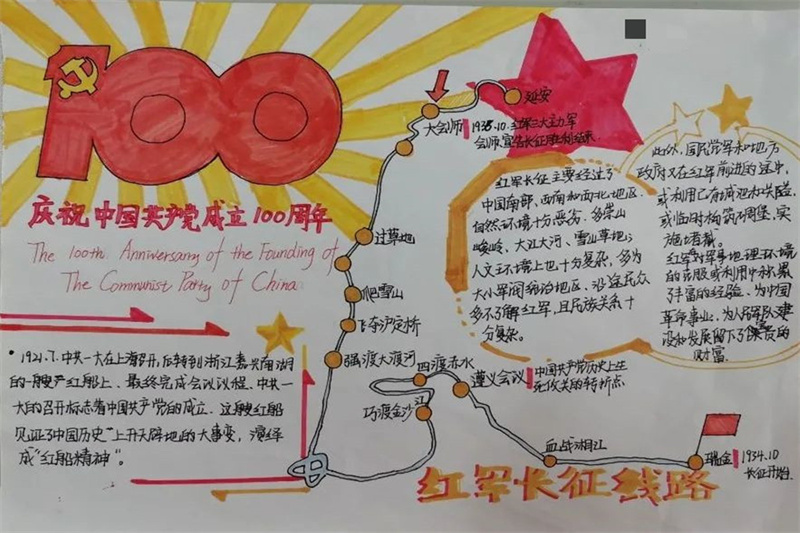 100
庆祝中国共产党成立100周年
The 100th Anniversary of the Founding of
The Communist Party of China
1921.7.中共一大在上海召开,后转到浙江嘉兴南湖
的一艘红船上、最终完成会议议程、中共一
大的召开标志着中国共产党的成立。这艘红船
见证了中国历史上开天辟地的大事变,
成"红船精神"。
延安
大会师
会师,宣告长征胜利结束.
过草地
爬雪山
飞夺泸定桥
强渡大渡河
四渡赤水
巧渡金沙江
遵义会议
中国共产党历史上生
死攸关的转折点
血战湘江
瑞金
1934.10
长征开始.
红军长征主要经过了
中国南部、西南和西北地区.
自然环境十分恶劣.多崇山
峻岭、大江大河、雪山草地;
人文环境上也十分复杂,多为
大小军阀统治地区、沿途民众
多不了解红军,且民族关系十
分复杂。
此外,国民党军和地方
政府又在红军前进的途中,
或利用已有城池和关隘,
或临时构筑碉堡,实
施堵截.
红军对军事地理环境
的克服或利用中积累
了丰富的经验、为中国
革命事业,为人民军队建
设和发展留下了宝贵的
财富.
红军长征线路